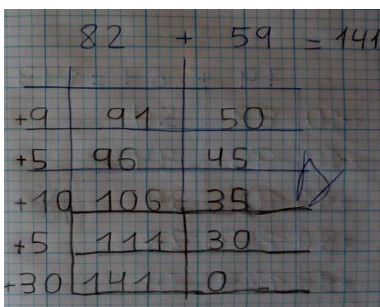 82 + 59 = 141
+9 91 50
+5 96 45
+10 106 35
+5 111 30
+30 141 0